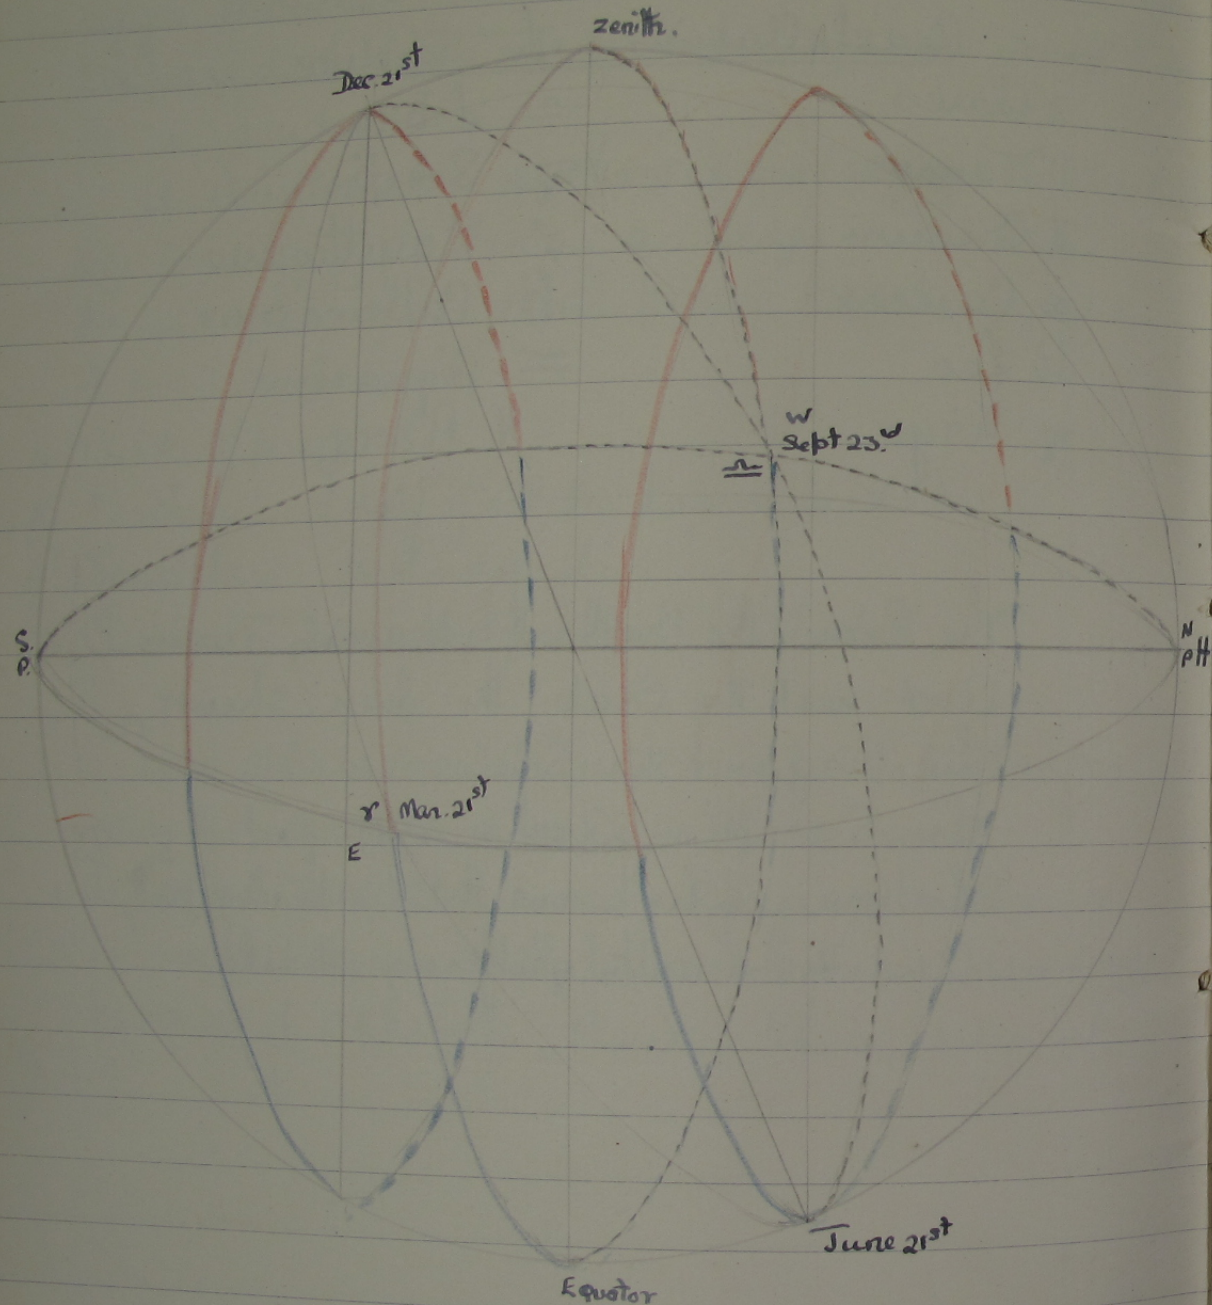 Zenith.
Dec. 21st
W
Sept 23.d
♎
S.
P.
N
PH
♈ Mar. 21st
E
June 21st
Equator